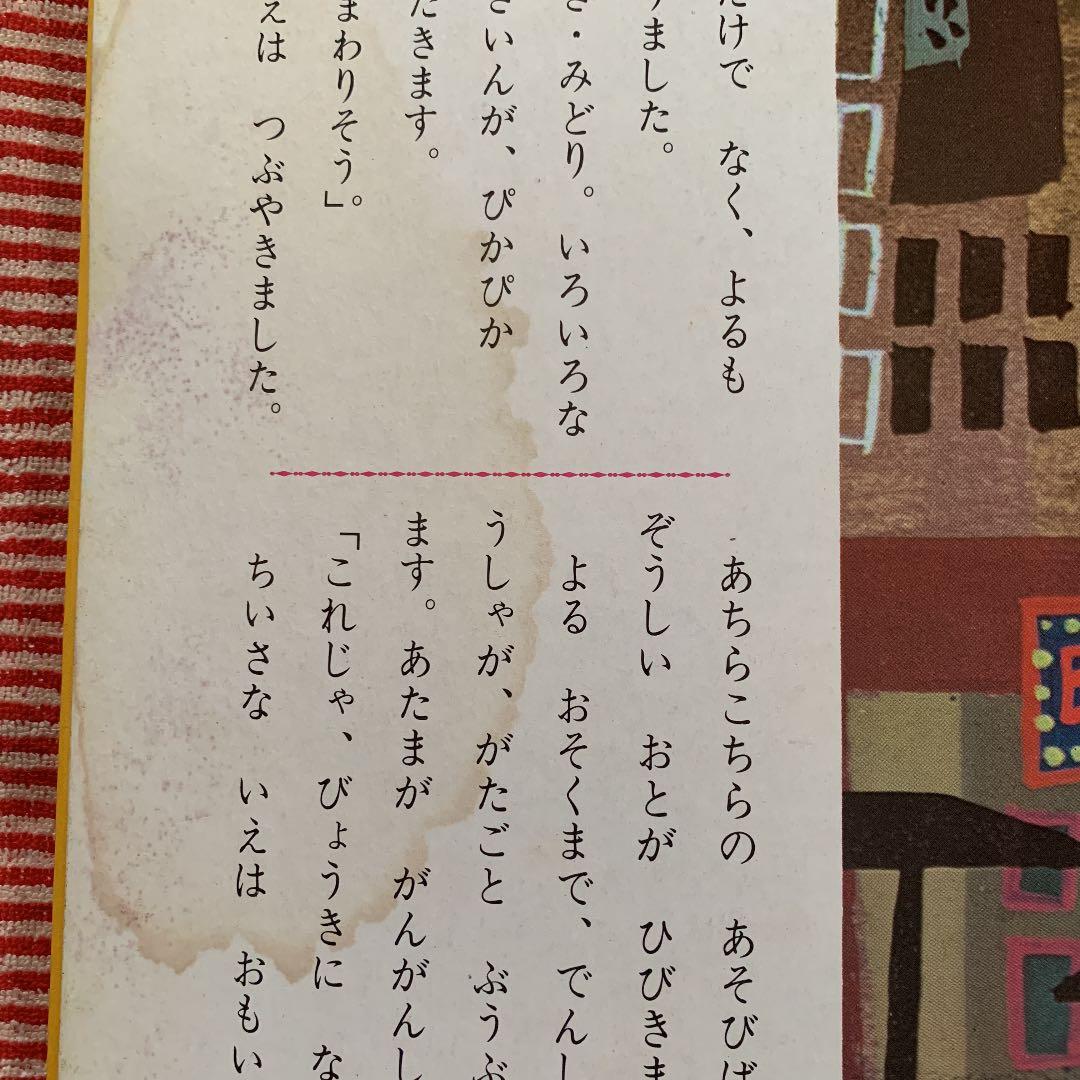 だけで なく、よるも
りました。
き・みどり。いろいろな
さいんが、ぴかぴか
たきます。
まわりそう」。
えは つぶやきました。
あちらこちらの あそびば
ぞうしい おとが ひびきま
よる おそくまで、でんし
うしゃが、がたごと ぶうぶ
ます。あたまが がんがんし
「これじゃ、びょうきに な
ちいさな いえは おもい